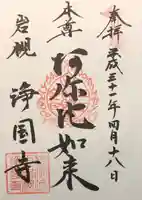 奉拝 平成三十一年四月十八日
本尊
阿弥陀如来
岩槻
浄国寺